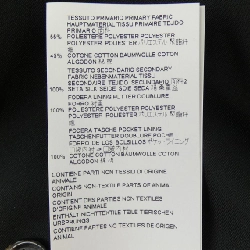 TESSUTO PRIMARIO PRIMARY FABRIC
HAUPTMATERIAL TISSU PRIMAIRE TEJIDO
PRIMARIO
POLIESTERE POLYESTER POLYESTER
POLYESTER POLIESTER
COTONE COTTON BAUMWOLLE COTON
ALGODON
TESSUTO SECONDARIO SECONDARY
FABRIC NEBENMATERIAL TISSU
SECONDAIRE TEJIDO SECUNDARIO
100% SETA SILK SEIDE SOIE SEDA
FODERA LINING FUTTER DOUBLURE
FORRO
100% POLIESTERE POLYESTER POLYESTER
POLYESTER POLIESTER
FODERA TASCHE POCKET LINING
TASCHENFUTTER DOUBLURE POCHE
FORRO DE LOS BOLSILLOS
100% COTONE COTTON BAUMWOLLE COTON
ALGODON
CONTIENE PARTI NON TESSILI DI ORIGINE
ANIMALE
CONTAINS NON TEXTILE PARTS OF ANIMAL
ORIGIN
CONTIENT DES PARTIES NON TEXTILES
D'ORIGINE ANIMALE
ENTHÄLT NICHTTEXTILE TEILE TIERISCHEN
URSPRUNGS
CONTIENE PARTES NO TEXTILES DE ORIGEN
ANIMAL